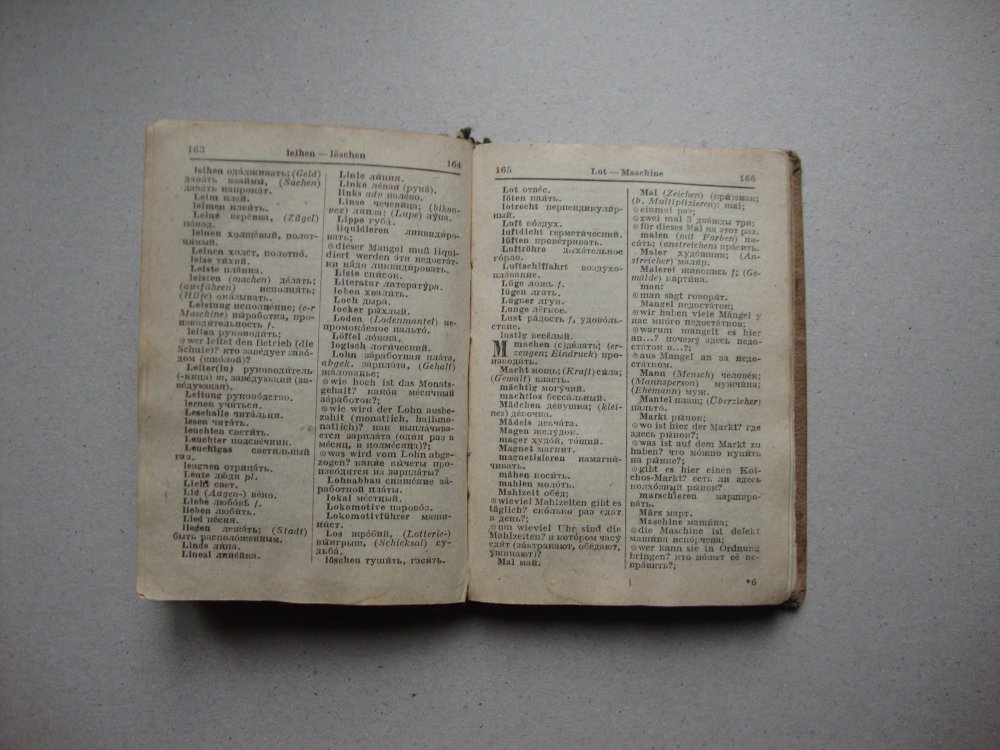 163
leihen — löschen
164
leihen одалживать; (Geld)
давать взаймы, (Sachen)
давать напрокат.
Leim клей.
leimen клеить.
Leine верёвка, (Zügel)
повод.
leinen холщёвый, полот-
няный.
Leinen холст, полотно.
leise тихий.
Leiste планка.
leisten (machen) делать;
(ausführen) исполнять;
(Hilfe) оказывать.
Leistung исполнение; (e-r
Maschine) выработка, про-
изводительность f.
leiten руководить;
⊙wer leitet den Betrieb (die
Schule)? кто заведует заво-
дом (школой)?
Leiter(in) руководитель
(-ница) m, заведующий (за-
ведующая).
Leitung руководство.
lernen учиться.
Lesehalle читальня.
lesen читать.
leuchten светить.
Leuchter подсвечник.
Leuchtgas светильный
газ.
leugnen отрицать.
Leute люди pl.
Licht свет.
Lid (Augen-) веко.
Liebe любовь f.
lieben любить.
Lied песня.
liegen лежать; (Stadt)
быть расположенным.
Linde липа.
Lineal линейка.
Linie линия.
Linke левая (рука).
links adv налево.
Linse чечевица; (bikon-
vex) линза; (Lupe) лупа.
Lippe губа.
liquidieren ликвидиро-
вать;
⊙dieser Mangel muß liqui-
diert werden эти недостат-
ки надо ликвидировать.
Liste список.
Literatur литература.
loben хвалить.
Loch дыра.
locker рыхлый.
Loden (Lodenmantel) не-
промокаемое пальто.
Löffel ложка.
logisch логический.
Lohn заработная плата,
abgek. зарплата, (Gehalt)
жалованье;
⊙wie hoch ist das Monats-
gehalt? каков месячный
заработок?;
⊙wie wird der Lohn ausbe-
zahlt (monatlich, halbmo-
natlich)? как выплачива-
ется зарплата (один раз в
месяц, в полмесяца)?;
⊙was wird vom Lohn abge-
zogen? какие вычеты про-
изводятся из зарплаты?
Lohnabbau снижение за-
работной платы.
lokal местный.
Lokomotive паровоз.
Lokomotivführer маши-
нист.
Los жребий, (Lotterie-)
выигрыш, (Schicksal) су-
дьба.
löschen тушить, гасить.
165
Lot — Maschine
166
Lot отвес.
löten паять.
lotrecht перпендикуляр-
ный.
Luft воздух.
luftdicht герметический.
lüften проветривать.
Luftröhre дыхательное
горло.
Luftschiffahrt воздухо-
плавание.
Lüge ложь f.
lügen лгать.
Lügner лгун.
Lunge лёгкое.
Lust радость f, удоволь-
ствие.
lustig весёлый.
M machen (с)делать; (er-
zeugen; Eindruck) про-
изводить.
Macht мощь; (Kraft) сила;
(Gewalt) власть.
mächtig могучий.
machtlos бессильный.
Mädchen девушка; (klei-
nes) девочка.
Mädels девчата.
Magen желудок.
mager худой, тощий.
Magnet магнит.
magnetisieren намагни-
чивать.
mähen косить.
mahlen молоть.
Mahlzeit обед;
⊙wieviel Mahlzeiten gibt es
täglich? сколько раз едят
в день?;
⊙um wieviel Uhr sind die
Mahlzeiten? в котором часу
едят (завтракают, обедают,
ужинают)?
Mai май.
Mal (Zeichen) (при)знак;
(b. Multiplizieren): mal;
⊙einmal раз;
⊙zwei mal 3 дважды три;
⊙für dieses Mal на этот раз.
malen (mit Farben) пи-
сать; (anstreichen) красить.
Maler художник; (An-
streicher) маляр.
Malerei живопись f; (Ge-
mälde) картина.
man:
⊙man sagt говорят.
Mangel недостаток;
⊙wir haben viele Mängel у
нас много недостатков;
⊙warum mangelt es hier
an...? почему здесь недо-
статок в...?;
⊙aus Mangel an за недо-
статком.
Mann (Mensch) человек;
(Mannsperson) мужчина;
(Ehemann) муж.
Mantel плащ; (Überzieher)
пальто.
Markt рынок;
⊙wo ist hier der Markt? где
здесь рынок?;
⊙was ist auf dem Markt zu
haben? что можно купить
на рынке?;
⊙gibt es hier einen Kol-
chos-Markt? есть ли здесь
колхозный рынок?
marschieren марширо-
вать.
März март.
Maschine машина;
⊙die Maschine ist defekt
машина испорчена;
⊙wer kann sie in Ordnung
bringen? кто может её ис-
править?;
*6